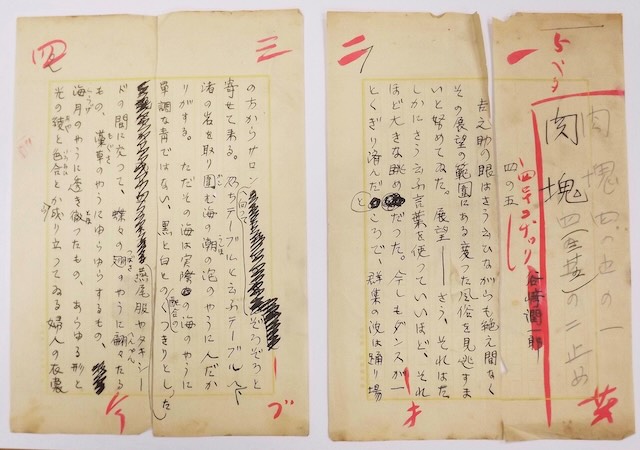 肉塊
谷崎潤一郎
四の五
吉之助の眼はさう云ひながらも絶え間なく
その展望の範囲にある変つた風俗を見逃すま
いと努めてゐた。展望――さう、それはた
しかにさう云ふ言葉を使つていいほど、それ
ほど大きな眺めだつた。今しもダンスが一
とくぎり済んだところで、群集の波は踊り場
二
三
の方からサロンへ向つてぞろぞろと
寄せて来る。乃ちテーブルと云ふテーブルへ、
渚の岩を取り囲む海の潮の泡のやうにんだか
りがする。ただその海は実際の海のやうに
単調な青ではない、黒と白との配合のくつきりとした
燕尾服やタキシー
ドの間に交つて、蝶々の翅のやうに翩々たる
もの、藻草のやうにゆらゆらするもの、
海月のやうに透き徹つたもの、あらゆる形と
光の綾と色合とが成り立つてゐる婦人の衣裳
四